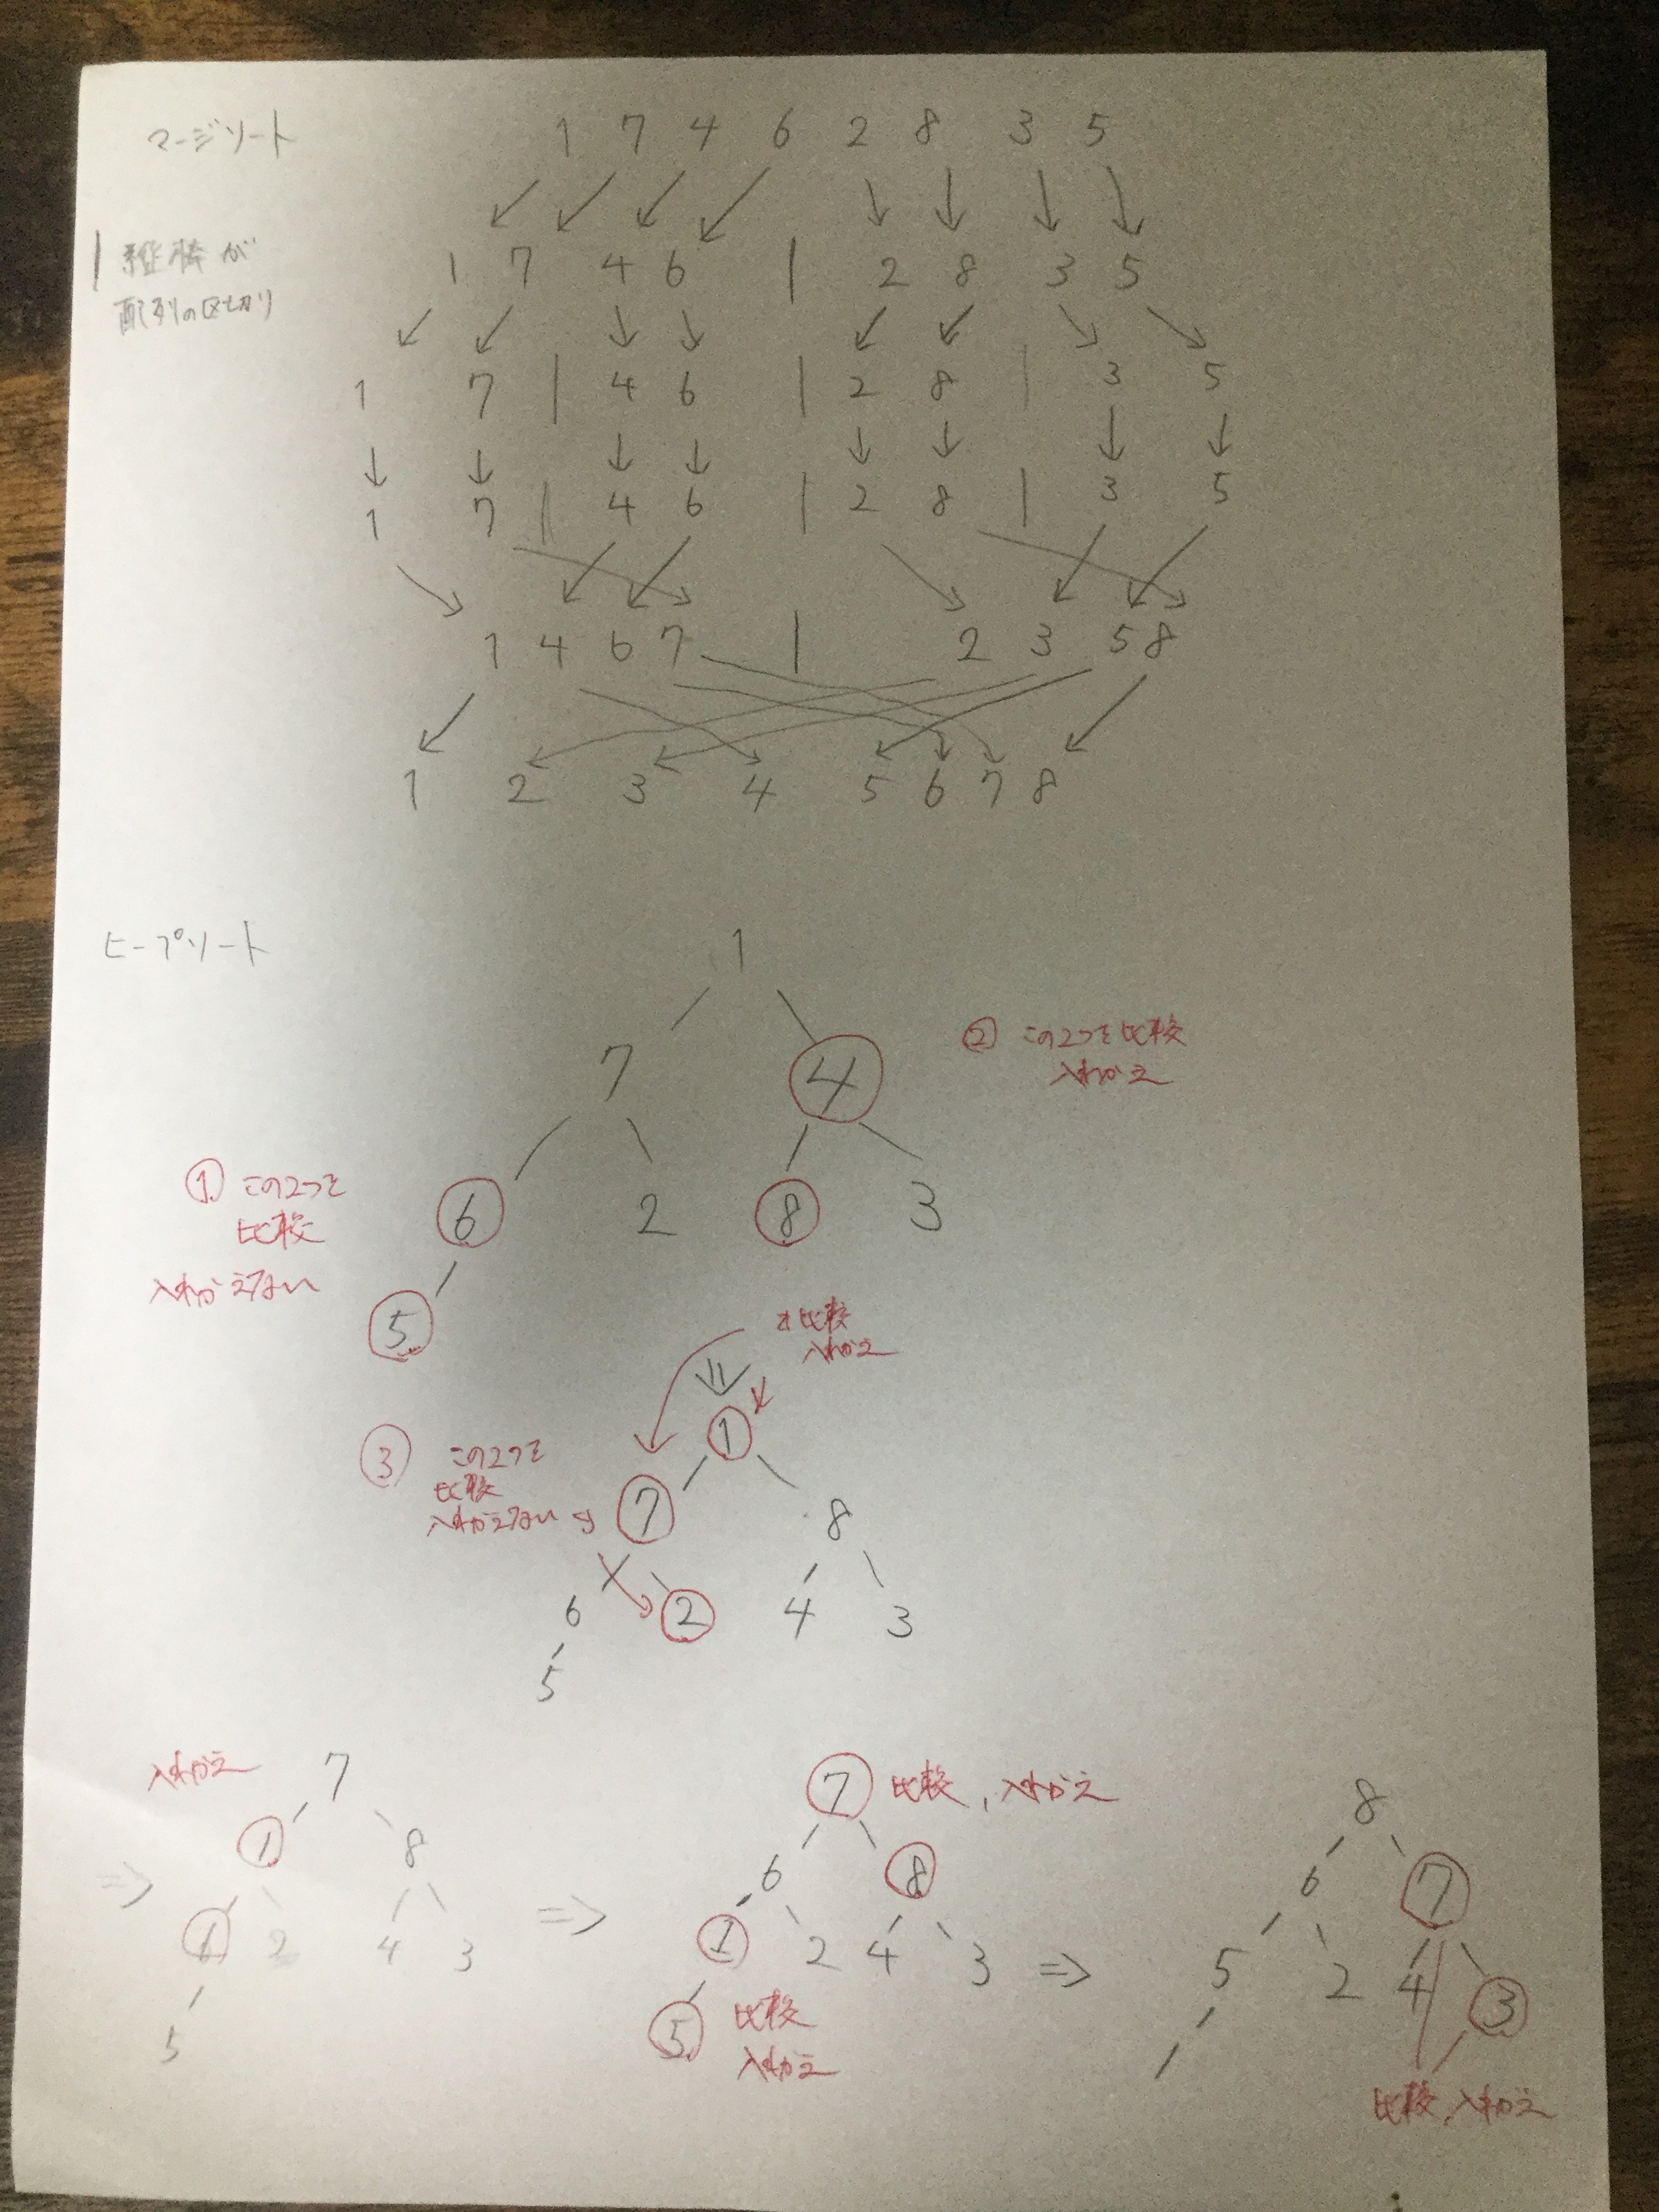 マージソート
1 7 4 6 2 8 3 5
| 縦棒が
配列の区切り
1 7 4 6 | 2 8 3 5
1 7 | 4 6 | 2 8 | 3 5
1 7 | 4 6 | 2 8 | 3 5
1 4 6 7 | 2 3 5 8
1 2 3 4 5 6 7 8
ヒープソート
1
7 4
② この2つを比較
入れかえ
① この2つを
比較
入れかえない
6 2 8 3
5
比較
入れかえ
1
③ この2つを
比較
入れかえない
7 8
6 2 4 3
5
入れかえ
7
1 8
1 2 4 3
5
7 比較,入れかえ
6 8
1 2 4 3
5 比較
入れかえ
8
6 7
5 2 4 3
比較,入れかえ